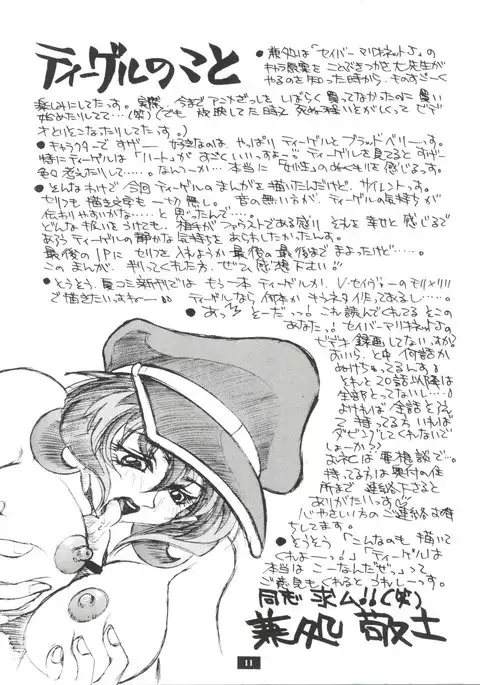 ティーゲルのこと
● 薬処は「セイバーマリオネットJ」の
キャラ原案をことぶきつかさ大先生が
やるのを知った時から、ものすごーく
楽しみにしてたっす。実際、今までアニメざっしをしばらく買ってなかったのに買い
始めたりしてて…(笑)
オとりにこなったりしてたっす。)
● キャラクターで
好きなのは やっぱり ティーゲルとブラッドベリーっす。
特にティーゲルは「ハート」がすごくいいっすよー♡ ティーゲルを見てると
考えたりして……。なんつーか…本当に「女性」のぬくもりを感じるっす。
● そんなわけで今回ティーゲルのまんがを描いたんだけど、サイレントっす。
セリフも描き文字も一切無し。音の無い方が、ティーゲルの気持ちが
伝わりやすいかな……と思ったんで……。
どんな扱いをうけても、相手がファウストである限り それを幸せと感じるで
あろうティーゲルの静かな気持ちをあらわしたかったんす。
最後の1Pにセリフを入れようか最後の最後までまよったけど……。
このまんが、
してくれた方、ぜひ感想下さい!!
● とうとう、
新刊では もう一本 ティーゲルか、
で描きたいっすねー
ティーゲルなら何本か
ネタ作ってあるし…。
● あっ
そーだっ!これ読んでくれてるそこの
あなたっ!セイバーマリオネットJの
ビデオ録画してないっすか?
おいら、と中何話か
ぬけちゃってるんす
それと20話以降は
全部とってないし…
よければ全話そろえ
て持ってる方いれば
ダビングしてくれないで
しょーか??
お礼は要相談で…。
持ってる方は奥付の住
所まで連絡下さると
ありがたいっす♡
心やさしい方のご連絡お待
ちしてます。
● そうそう「こんなのも描いて
くれよーっ!」「ティーゲルは
本当はこーなんだぜっ」って
ご意見もくれるとうれしーっす。
同志求ム!!(笑)
薬処 敬士
11